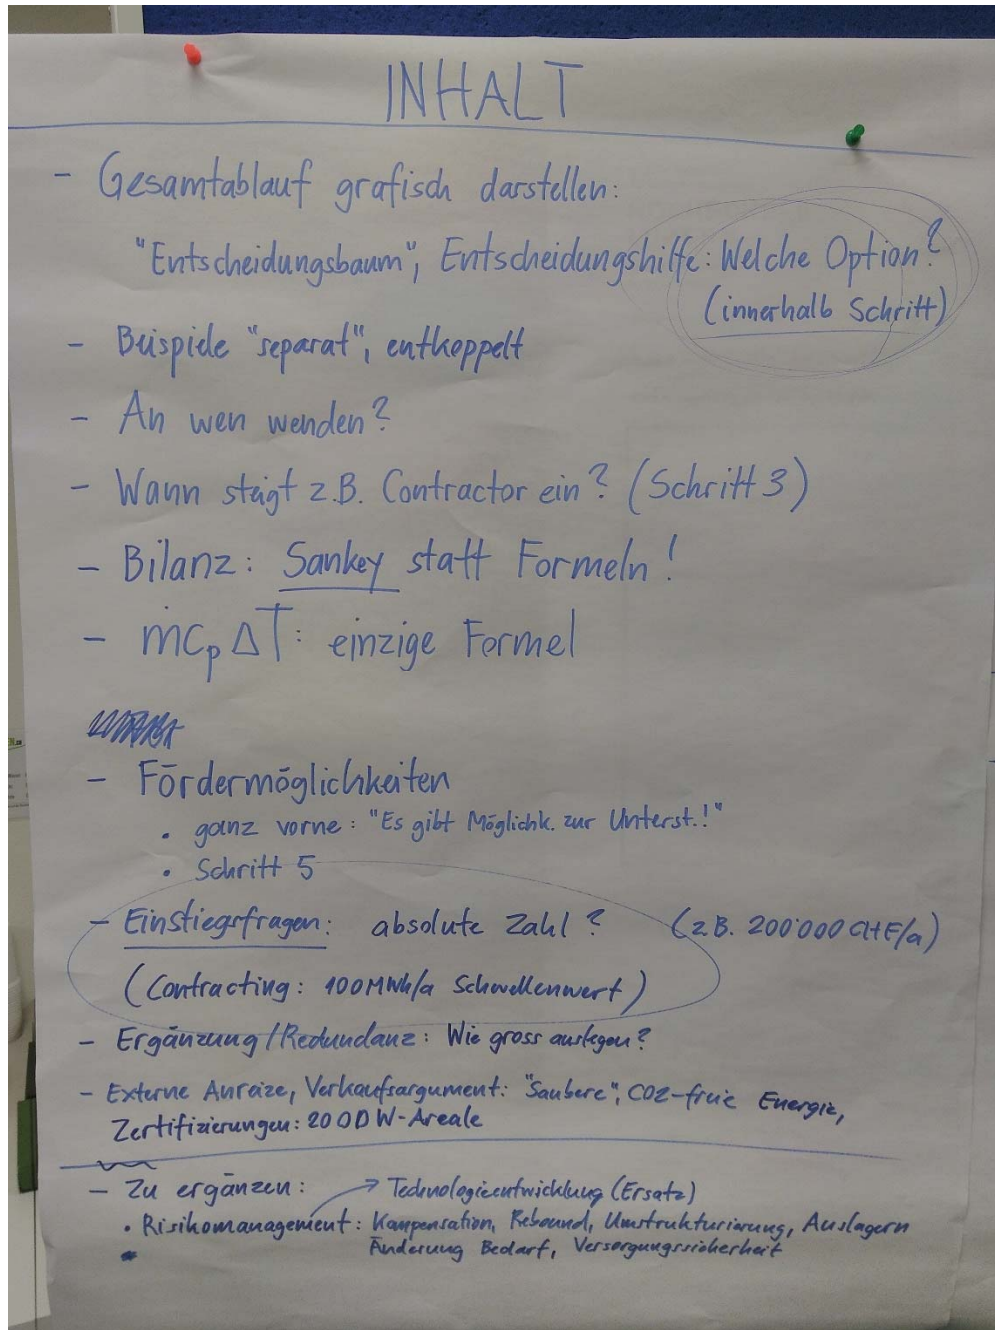 INHALT
- Gesamtablauf grafisch darstellen:
"Entscheidungsbaum", Entscheidungshilfe: Welche Option?
(innerhalb Schritt)
- Beispiele "separat", entkoppelt
- An wen wenden?
- Wann steigt z.B. Contractor ein? (Schritt 3)
- Bilanz: Sankey statt Formeln!
- ṁcp ΔT: einzige Formel
- Fördermöglichkeiten
• ganz vorne: "Es gibt Möglichk. zur Unterst.!"
• Schritt 5
- Einstiegsfragen: absolute Zahl? (z.B. 200'000 CHF/a)
(Contracting: 100MWh/a Schwellenwert)
- Ergänzung/Redundanz: Wie gross auslegen?
- Externe Anreize, Verkaufsargument: "Saubere", CO2-freie Energie,
Zertifizierungen: 2000W-Areale
- Zu ergänzen: → Technologieentwicklung (Ersatz)
• Risikomanagement: Kompensation, Rebound, Umstrukturierung, Auslagern
Änderung Bedarf, Versorgungssicherheit